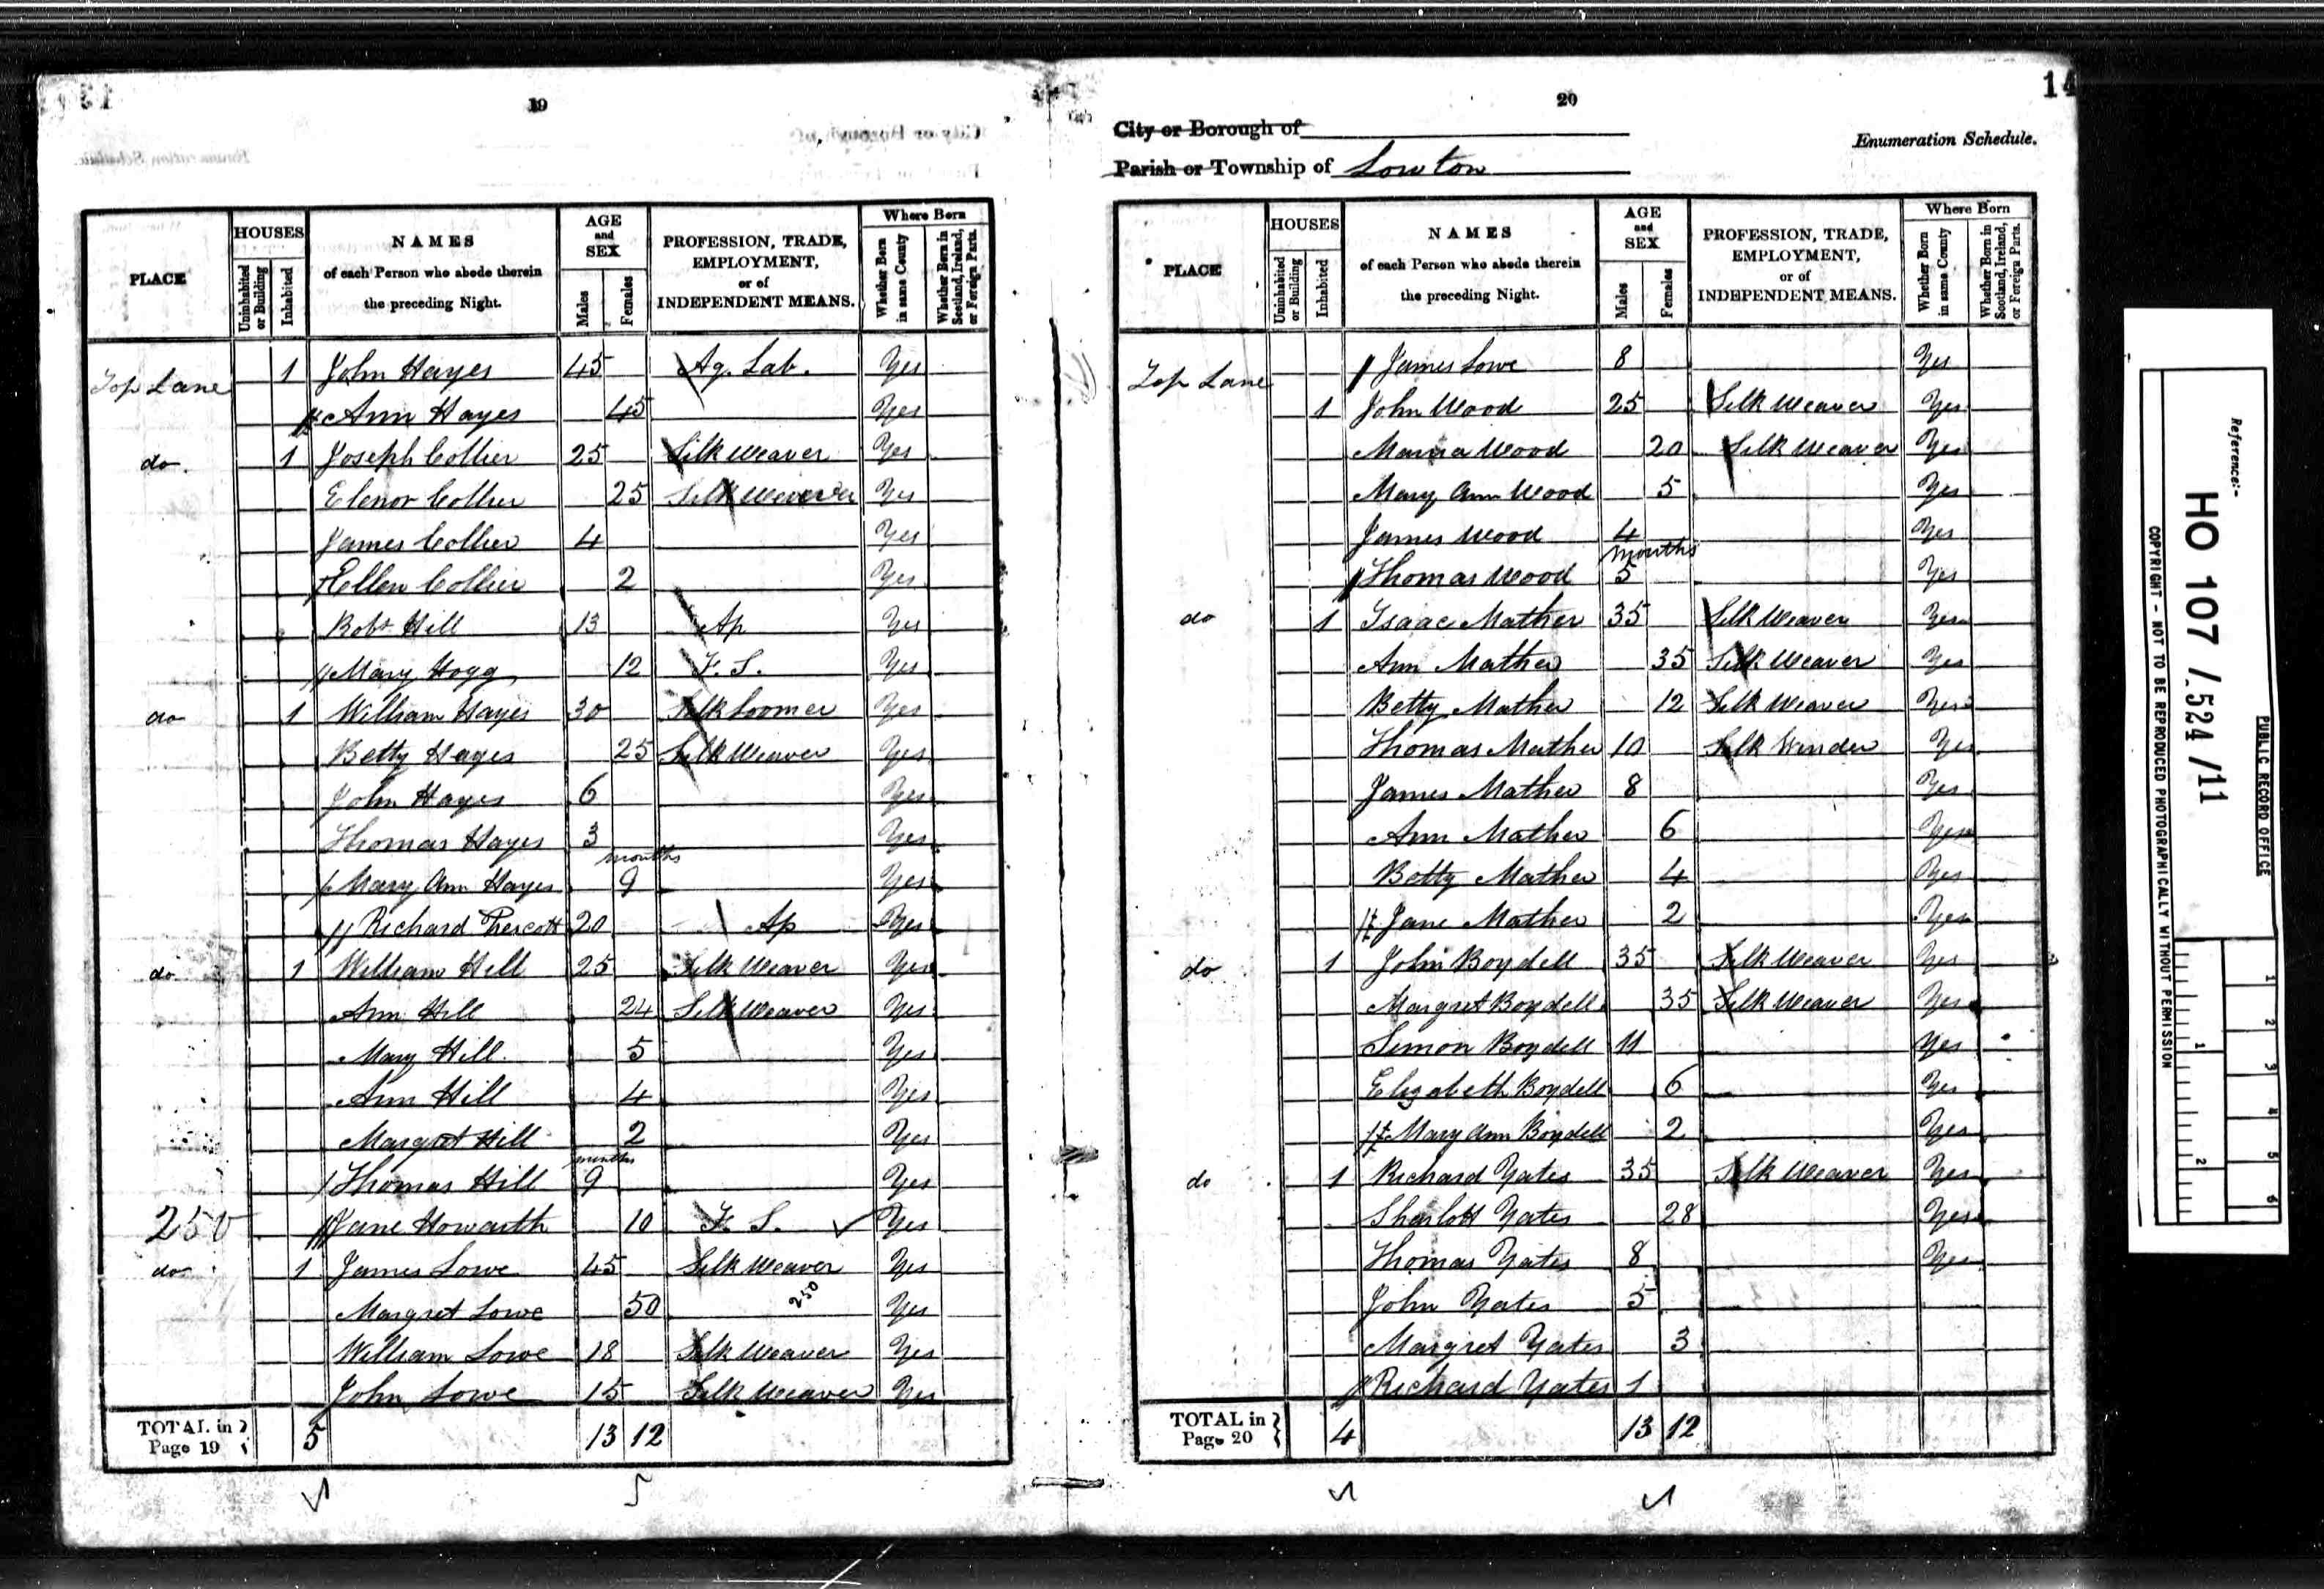 19
HOUSES
AGE
and
SEX
Where Born
PLACE
Uninhabited or Building
Inhabited
NAMES
of each Person who abode therein
the preceding Night.
Males
Females
PROFESSION, TRADE,
EMPLOYMENT,
or of
INDEPENDENT MEANS.
Whether Born in same County
Whether Born in Scotland, Ireland, or Foreign Parts.
Top Lane 1 John Hayes 45 Ag. Lab. Yes
Ann Hayes 45 Yes
do 1 Joseph Collier 25 Silk Weaver Yes
Elenor Collier 25 Silk Yes
James Collier 4 Yes
Ellen Collier 2 Yes
Robt Hill 13 Ap Yes
Mary Hogg 12 F. S. Yes
do 1 William Hayes 30 Silk Loomer Yes
Betty Hayes 25 Silk Weaver Yes
John Hayes 6 Yes
Thomas Hayes 3 Yes
Mary Ann Hayes 9 months Yes
Richard 20 Ap Yes
do 1 William Hill 25 Silk Weaver Yes
Ann Hill 24 Silk Weaver Yes
Mary Hill 5 Yes
Ann Hill 4 Yes
Margret Hill 2 Yes
Thomas Hill 9 months Yes
250 Jane Howarth 10 F. S. Yes
do 1 James Lowe 45 Silk Weaver Yes
Margret Lowe 50 250 Yes
William Lowe 18 Silk Weaver Yes
John Lowe 15 Silk Weaver Yes
TOTAL in
Page 19 5 13 12
20
14
City or Borough of
Enumeration Schedule.
Parish or Township of Lowton
HOUSES
AGE
and
SEX
Where Born
PLACE
Uninhabited or Building
Inhabited
NAMES
of each Person who abode therein
the preceding Night.
Males
Females
PROFESSION, TRADE,
EMPLOYMENT,
or of
INDEPENDENT MEANS.
Whether Born in same County
Whether Born in Scotland, Ireland, or Foreign Parts.
Top Lane James Lowe 8 Yes
1 John Wood 25 Silk Weaver Yes
Wood 20 Silk Weaver Yes
Mary Ann Wood 5 Yes
James Wood 4 Yes
Thomas Wood 5 months Yes
do 1 Isaac Mather 35 Silk Weaver Yes
Ann Mather 35 Silk Weaver Yes
Betty Mather 12 Silk Weaver Yes
Thomas Mather 10 Silk Winder Yes
James Mather 8 Yes
Ann Mather 6 Yes
Betty Mather 4 Yes
Jane Mather 2 Yes
do 1 John Boydell 35 Silk Weaver Yes
Margret Boydell 35 Silk Weaver Yes
Simon Boydell 11 Yes
Elizabeth Boydell 6 Yes
Mary Ann Boydell 2 Yes
do 1 Richard Yates 35 Silk Weaver Yes
Sharlott Yates 28 Yes
Thomas Yates 8 Yes
John Yates 5
Margret Yates 3
Richard Yates 1
TOTAL in
Page 20 4 13 12
PUBLIC RECORD OFFICE
Reference:-
HO 107 / 524 / 11
COPYRIGHT - NOT TO BE REPRODUCED PHOTOGRAPHICALLY WITHOUT PERMISSION
1 2 3 4 5 6
1 2